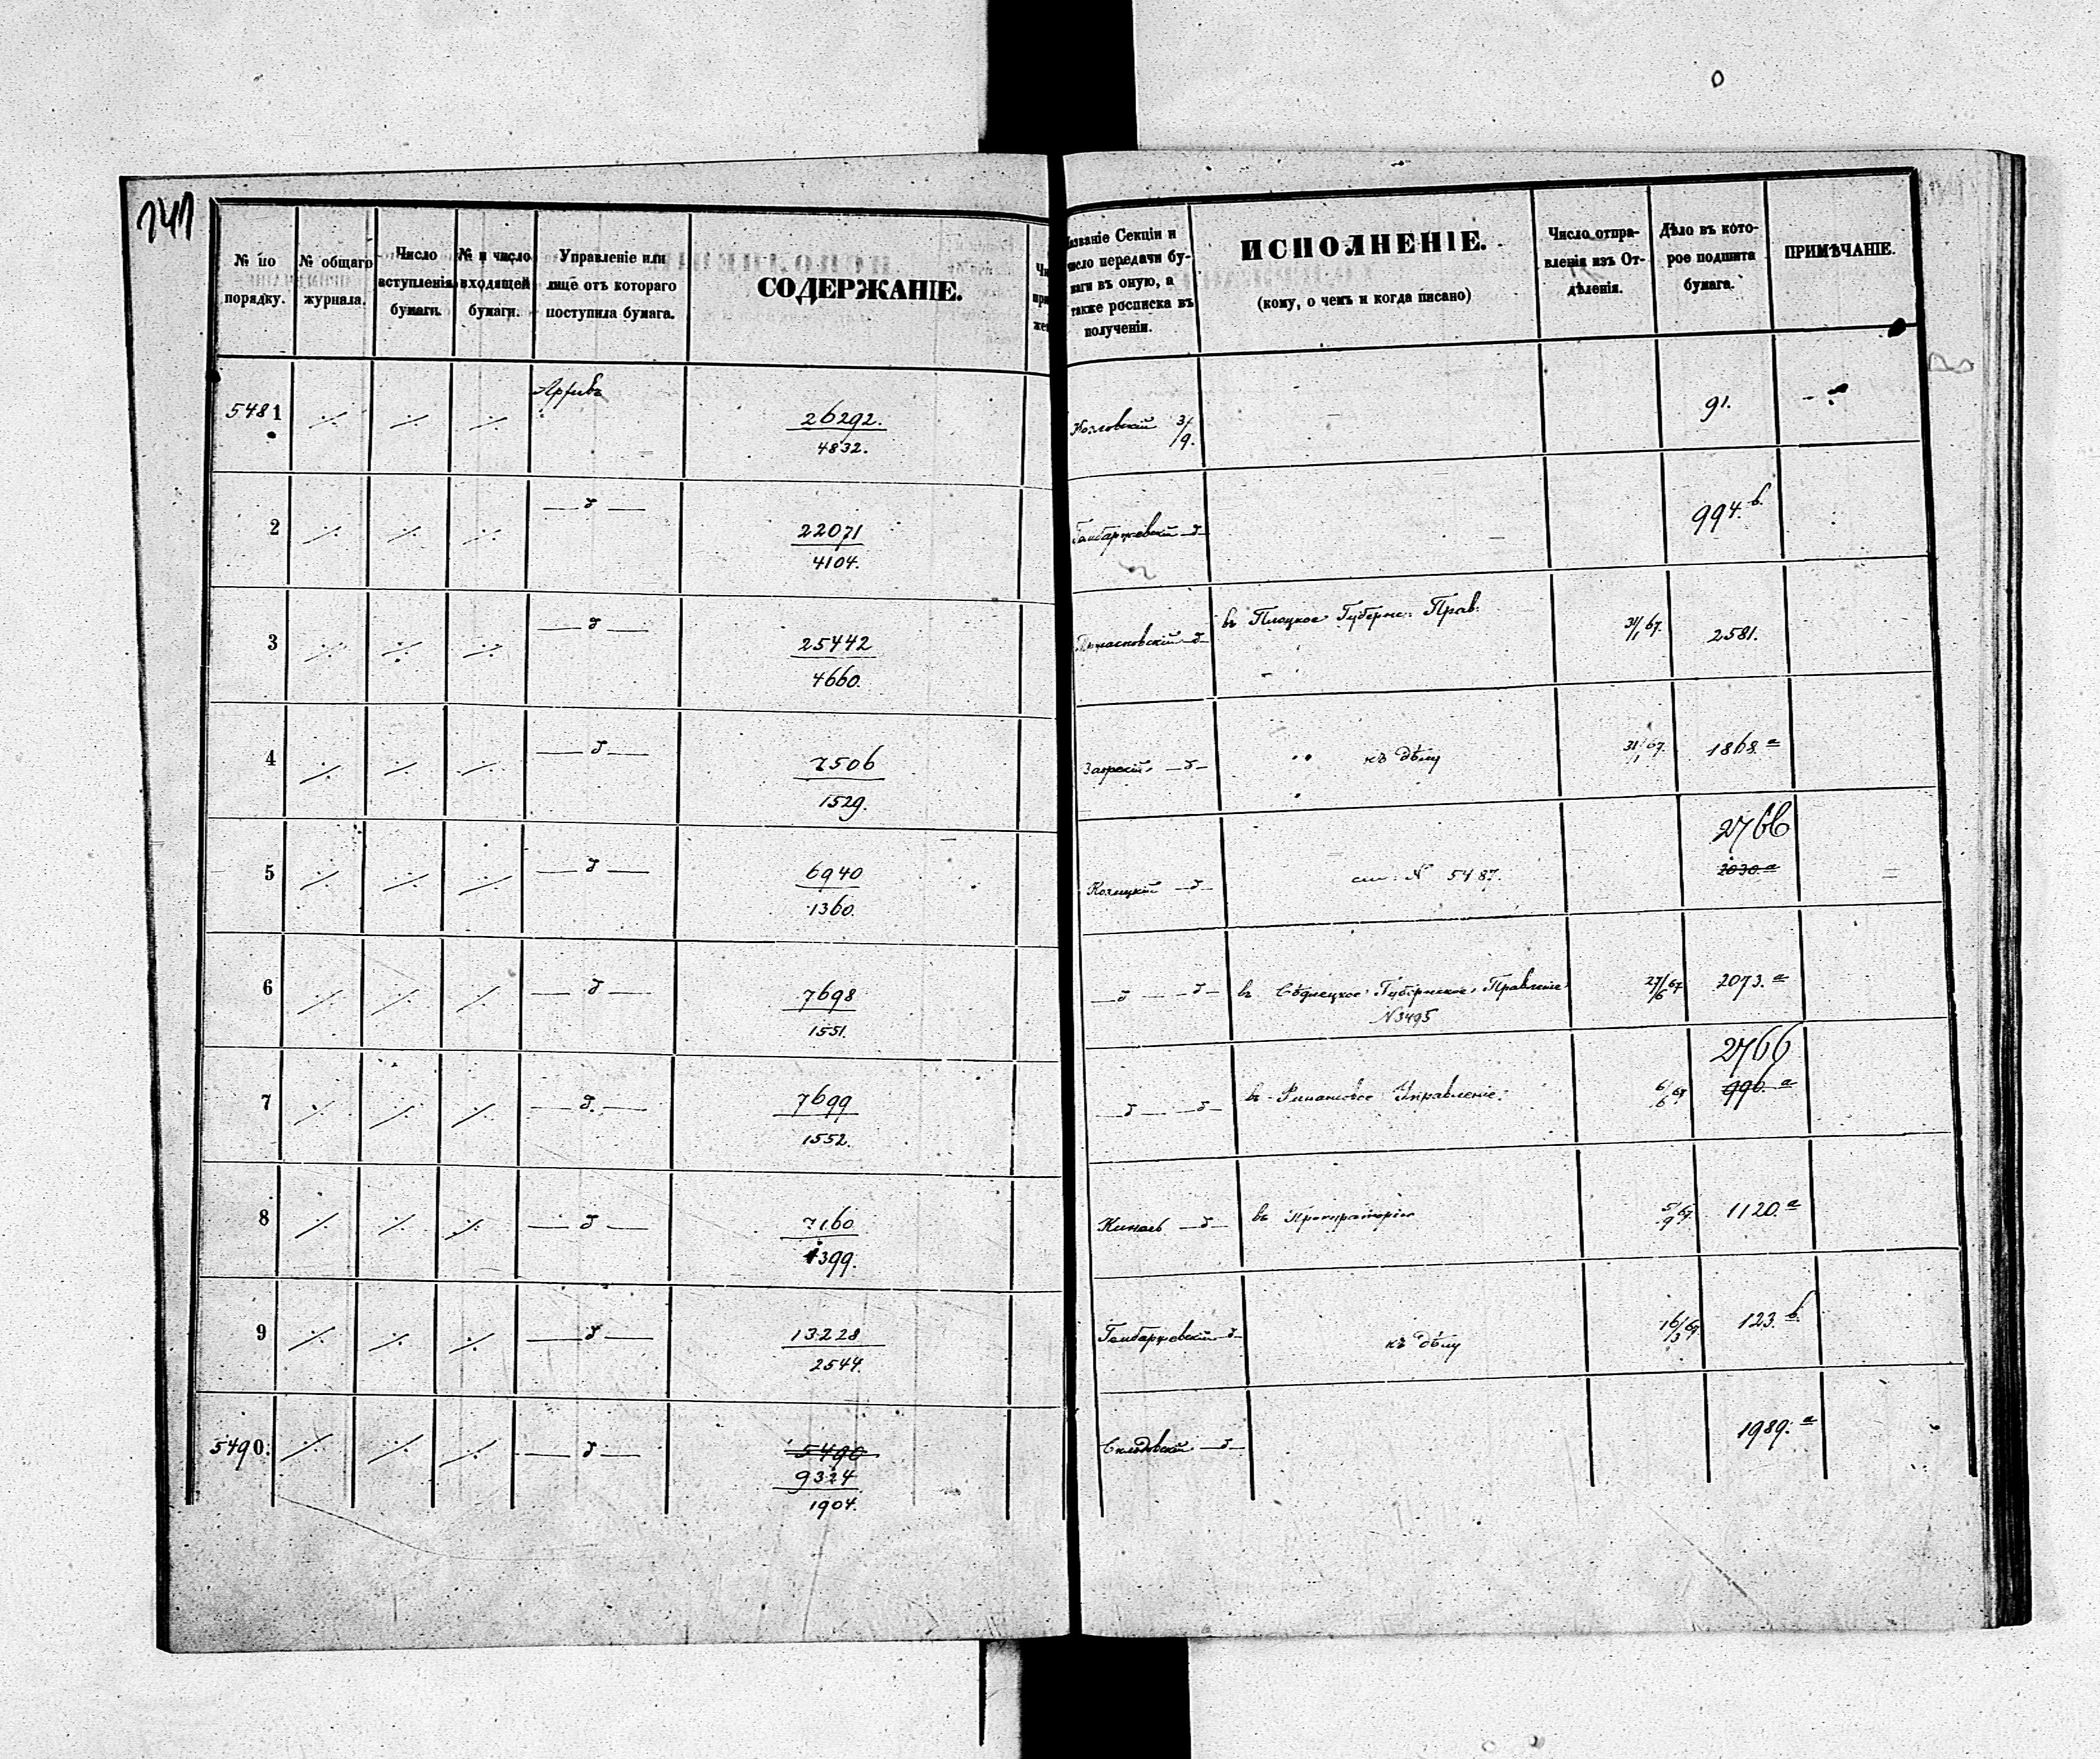 741
№ по порядку.
№ общаго журнала.
Число вступленія бумаги.
№ и число входящей бумаги.
Управленіе или лице отъ котораго поступила бумага.
СОДЕРЖАНІЕ.
Названіе Секціи и число передачи бумаги въ оную, а также росписка въ полученіи.
ИСПОЛНЕНІЕ.
(кому, о чемъ и когда писано)
Число отправленія изъ Отдѣленія.
Дѣло въ которое подшита бумага.
ПРИМѢЧАНІЕ.
5481 Архивъ 26292. 4832. Козловскій 3/9. 91.
2 22071 4104. 994.в.
3 25442 4660. въ Плоцкое Губернс. Прав. 31/1 67. 2581.
4 7506 1529. къ дѣлу 31/1 67. 1868.а
5 6940 1360. Козицкій см. № 5487. 2766 2030.а
6 7698 1551. въ Сѣдлецкое Губернское Правленіе №3495 27/6 67 2073.а
7 7699 1552. въ Финансовое Управленіе. 6/6 67 2766 996.а
8 7160 1399. въ Прокураторію 5/9 67. 1120.а
9 13228 2544. къ дѣлу 16/3 67. 123.в.
5490. 5490 9324 1904. 1989.а